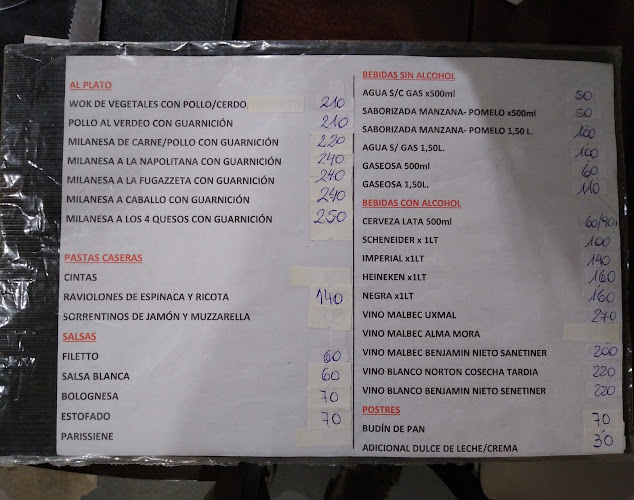 AL PLATO
WOK DE VEGETALES CON POLLO/CERDO, 210
POLLO AL VERDEO CON GUARNICIÓN 210
MILANESA DE CARNE/POLLO CON GUARNICIÓN 220
MILANESA A LA NAPOLITANA CON GUARNICIÓN 240
MILANESA A LA FUGAZZETA CON GUARNICIÓN 240
MILANESA A CABALLO CON GUARNICIÓN 240
MILANESA A LOS 4 QUESOS CON GUARNICIÓN 250
PASTAS CASERAS
CINTAS
RAVIOLONES DE ESPINACA Y RICOTA 140
SORRENTINOS DE JAMÓN Y MUZZARELLA
SALSAS
FILETTO 60
SALSA BLANCA 60
BOLOGNESA 70
ESTOFADO 70
PARISSIENE
BEBIDAS SIN ALCOHOL
AGUA S/C GAS x500ml 50
SABORIZADA MANZANA- POMELO x500ml 50
SABORIZADA MANZANA- POMELO 1,50 L. 100
AGUA S/ GAS 1,50L. 100
GASEOSA 500ml 60
GASEOSA 1,50L. 110
BEBIDAS CON ALCOHOL
CERVEZA LATA 500ml 60/90
SCHENEIDER x 1LT 100
IMPERIAL x1LT 140
HEINEKEN x1LT 160
NEGRA x1LT 160
VINO MALBEC UXMAL 270
VINO MALBEC ALMA MORA
VINO MALBEC BENJAMIN NIETO SANETINER 200
VINO BLANCO NORTON COSECHA TARDIA 220
VINO BLANCO BENJAMIN NIETO SENETINER 220
POSTRES
BUDÍN DE PAN 70
ADICIONAL DULCE DE LECHE/CREMA 30